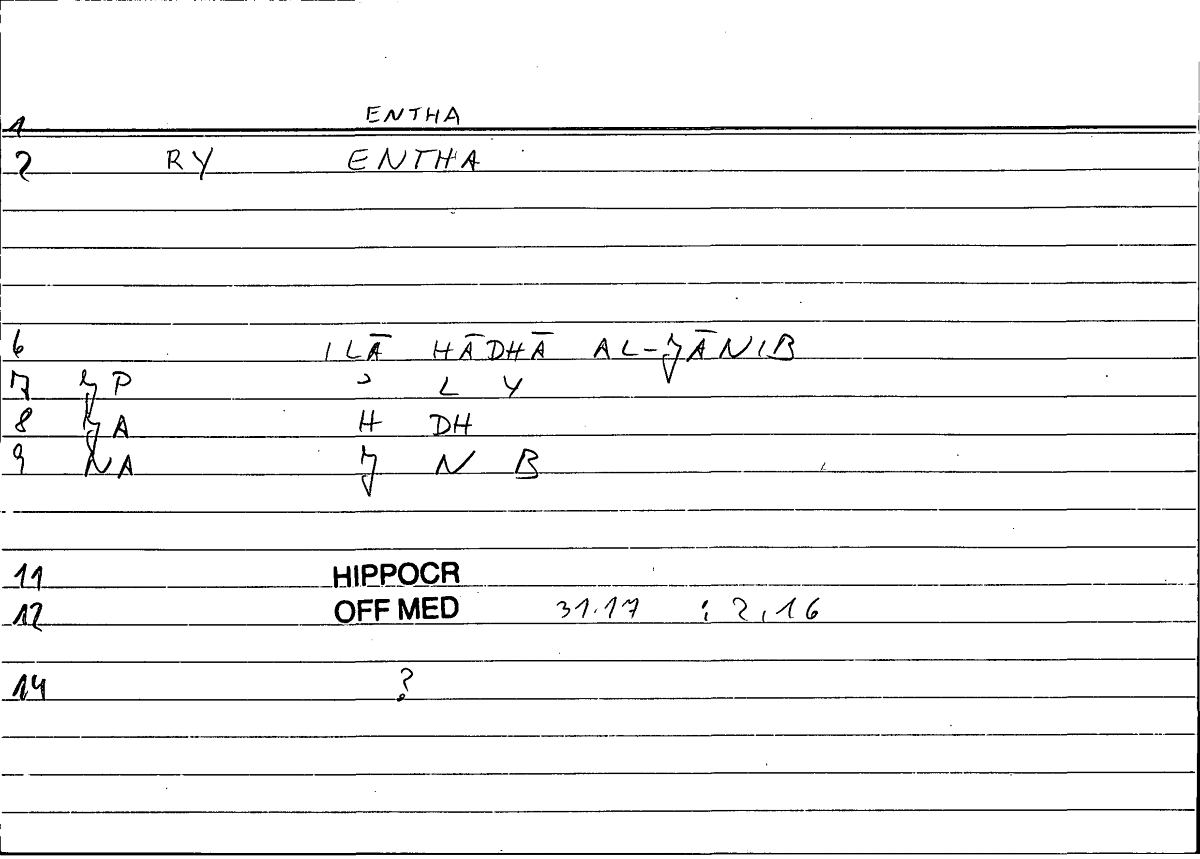 1 ENTHA
2 RY ENTHA
6 ILĀ HĀDHĀ AL-JĀNIB
7 JP ʾ L Y
8 JA H DH
9 NA J N B
11 HIPPOCR
12 OFF MED 31.17 : 2,16
14 ?